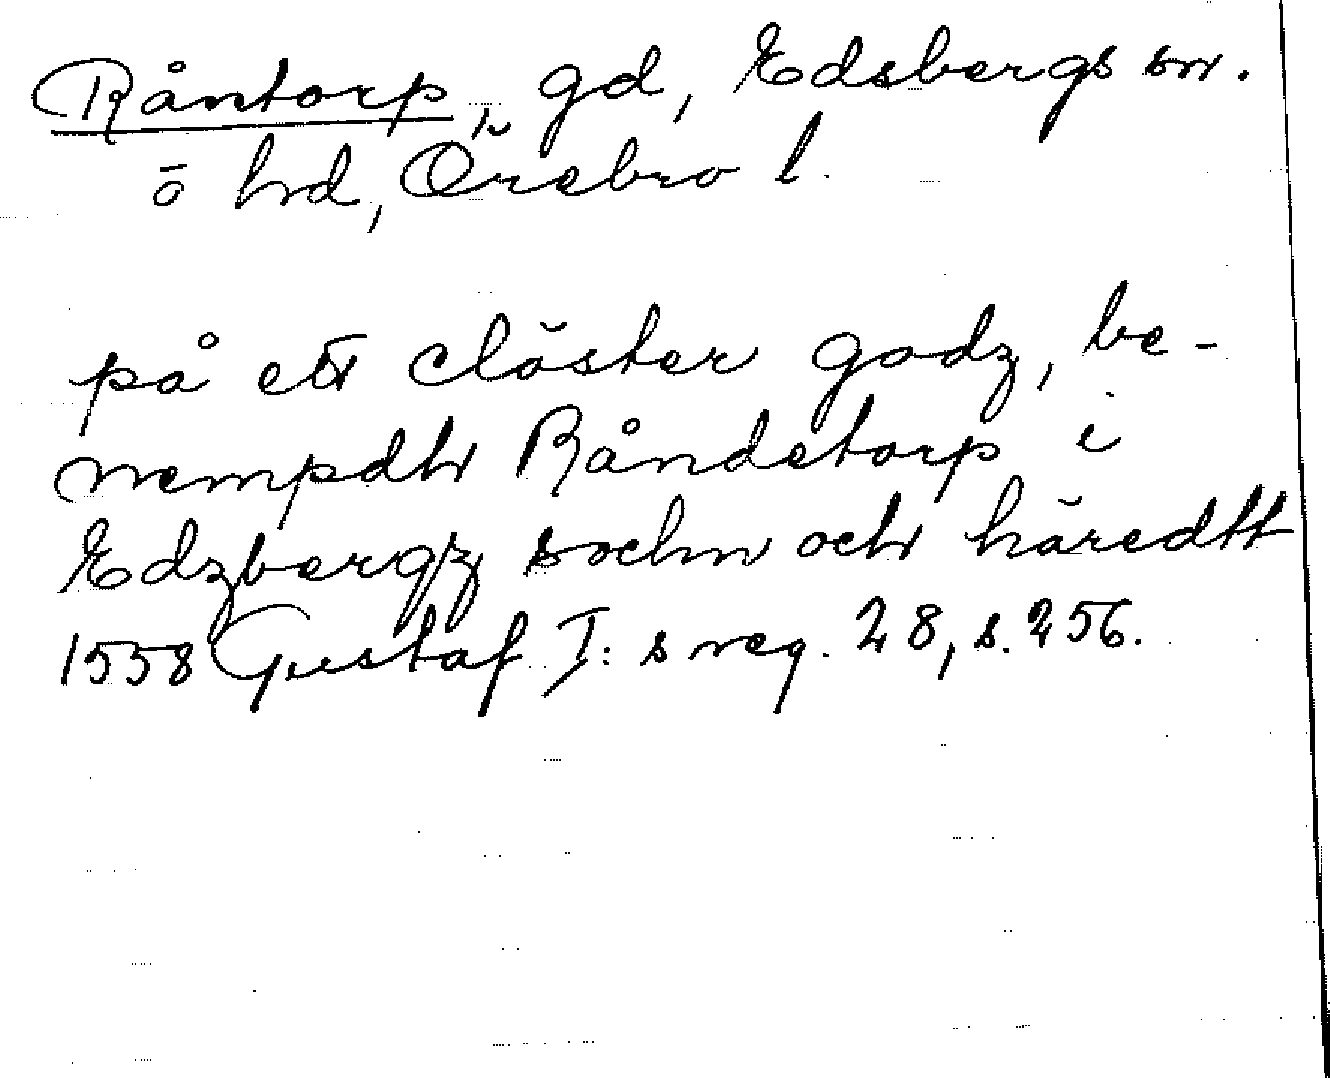 Råntorp, gd, Edsbergs sn.
o hd, Örebro l.
på ett clöster godz, be-
nempdh Råndetorp i
Edzbergz sochn och häredtt
1558 Gustaf I:s reg. 28, s. 256.